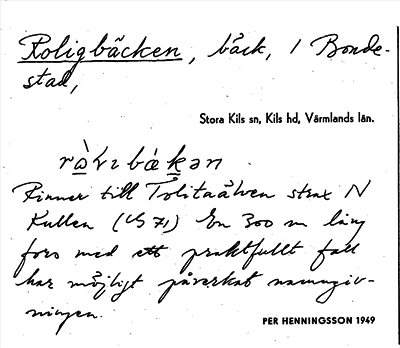 Roligbäcken, bäck, i Bonde-
stad,
Stora Kils sn, Kils hd, Värmlands län.
Rinner till Tolitaälven strax N
Kullen (US 71) En 300 m lång
fors med ett praktfullt fall
har möjligt påverkat namngiv-
ningen.
PER HENNINGSSON 1949